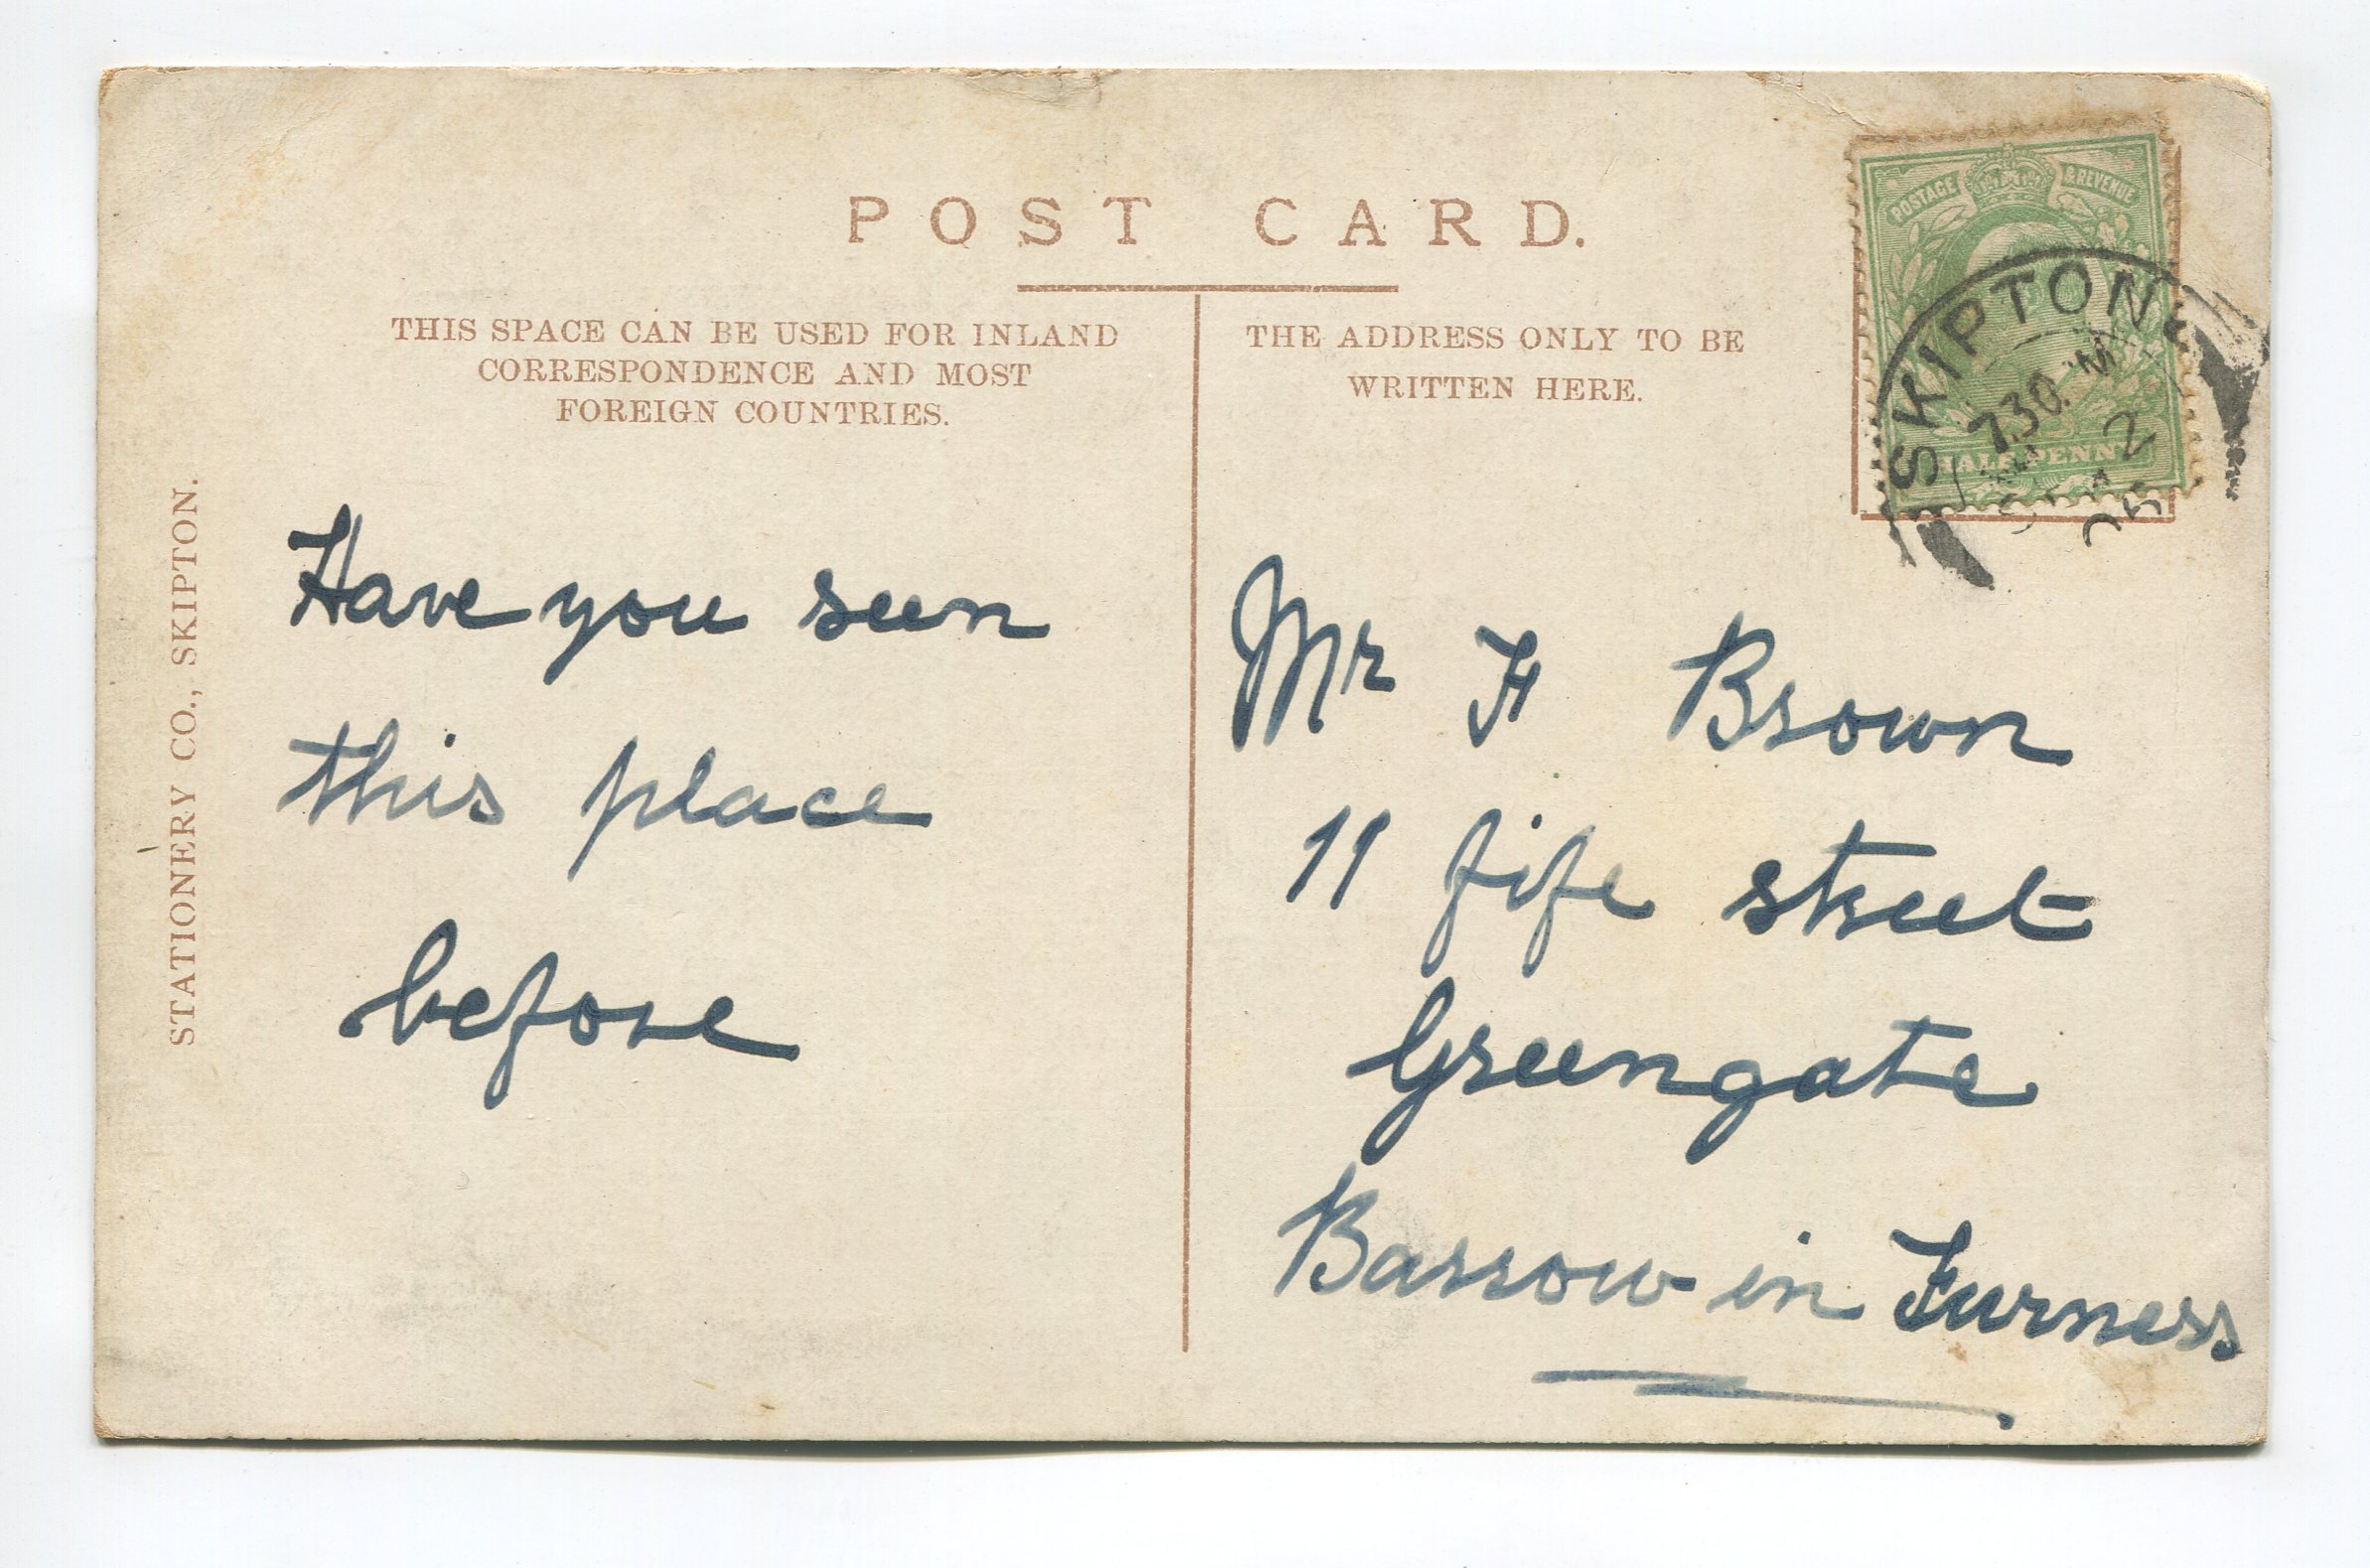 POST CARD.
THIS SPACE CAN BE USED FOR INLAND
CORRESPONDENCE AND MOST
FOREIGN COUNTRIES.
THE ADDRESS ONLY TO BE
WRITTEN HERE.
POSTAGE & REVENUE
HALFPENNY
SKIPTON
7.30
STATIONERY CO., SKIPTON.
Have you seen
this place
before
Mr F Brown
11 fife street
Greengate
Barrow in Furness